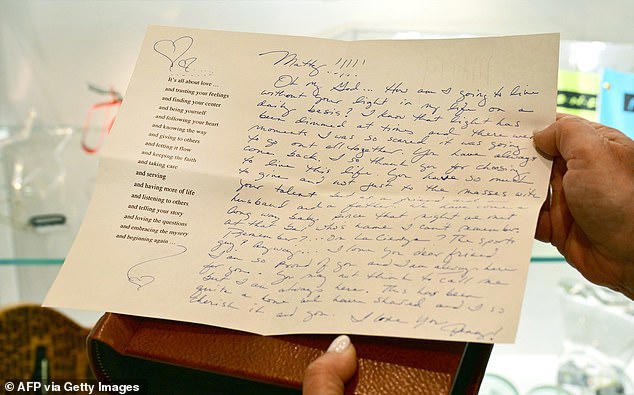 It's all about love ...
and trusting your feelings
and finding your center
and being yourself
and following your heart
and knowing the way
and giving to others
and letting it flow
and keeping the faith
and taking care
and serving
and having more of life
and listening to others
and telling your story
and loving the questions
and embracing the mystery
and beginning again ...
Matty !!!!!
Oh my God... How am I going to live
without your light in my life on a
daily basis? I know that light has
been dimmed at times and there were
moments I was so scared it was going
to go out all together. You have always
come back. I so thank you for choosing
to live this life. You have so much
to give and not just to the masses with
your talent as a friend and
husband and a father. We have come a
long way baby. Since that night we met
at that bar who's name I can't remember.
Remember?... On La Cienega? The sports
guy? Anyway... I love you dear friend
I am so proud of you and I am always here
for you. You may not think to call me
but I am always here. This has been
quite a home we have shared and I so
cherish it and you. I love you
© AFP via Getty Images